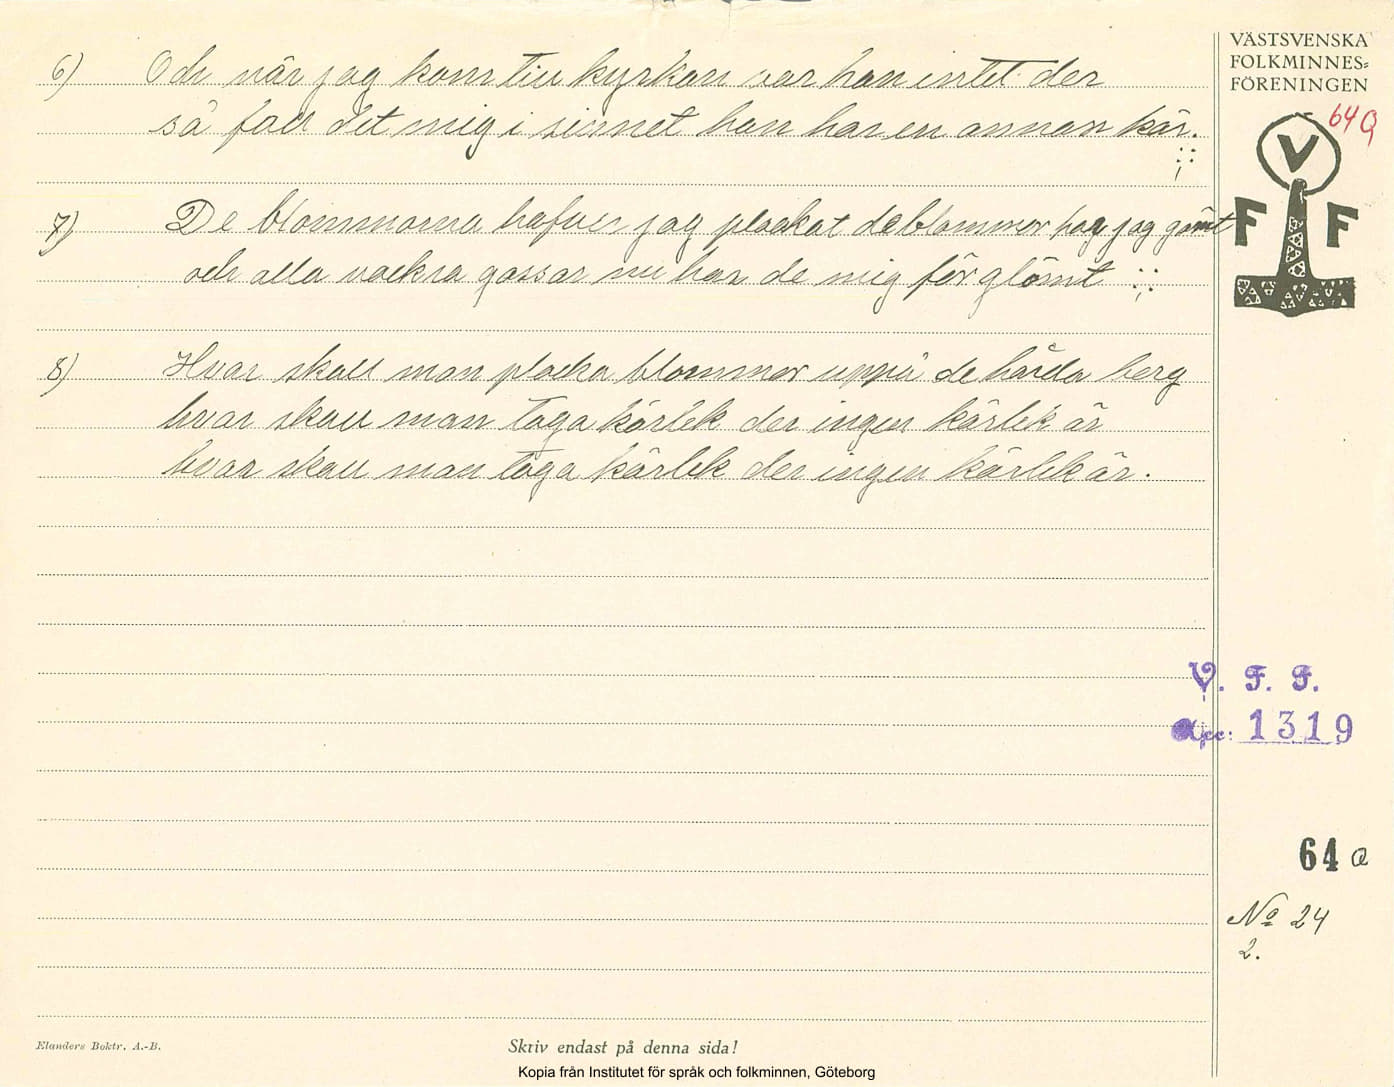 VÄSTSVENSKA
FOLKMINNES-
FÖRENINGEN
64 a
V
F F
6) Och när jag kom till kyrkan var han intet der
så fall det mig i sinnet han har en annan kär.
;:
7) De blommorna hafver jag plockat de blommor har jag gömt
och alla vackra gossar nu har de mig för glömt ;:
8) Hvar skall man plocka blommor uppå de hårda berg
hvar skall man taga kärlek der ingen kärlek är
hvar skall man taga kärlek der ingen kärlek är.
V. F. F.
Acc: 1319
64 a
No 24
2.
Elanders Boktr. A.-B.
Skriv endast på denna sida!
Kopia från Institutet för språk och folkminnen, Göteborg